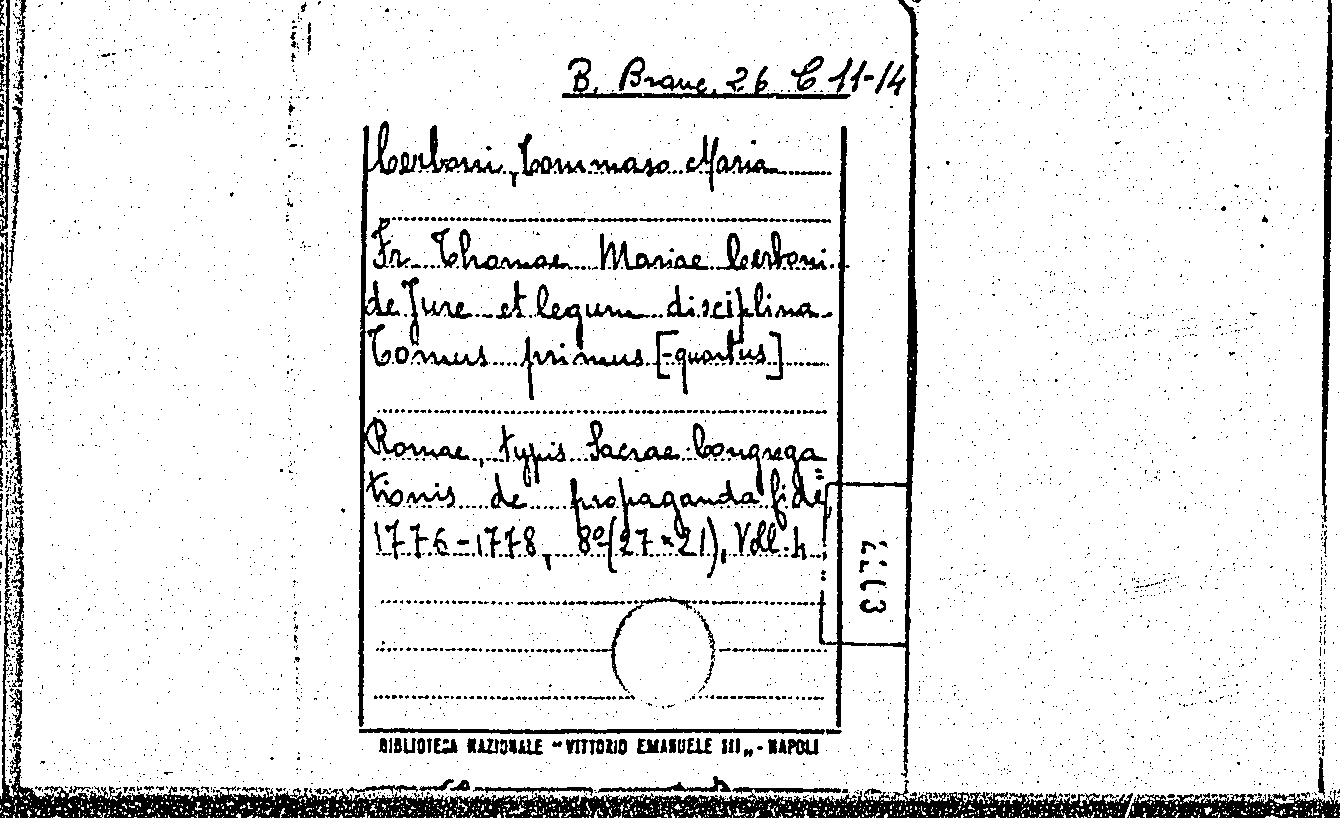 B. Branc. 26 C 11-14
Cerboni, Tommaso Maria
Fr. Thomae Mariae Cerboni
de Jure et legum disciplina
Tomus primus [-quartus]
Romae, typis Sacrae Congrega
tionis de propaganda fide
1776-1778, 8º (27×21), Voll. 4
BIBLIOTECA NAZIONALE "VITTORIO EMANUELE III„ - NAPOLI